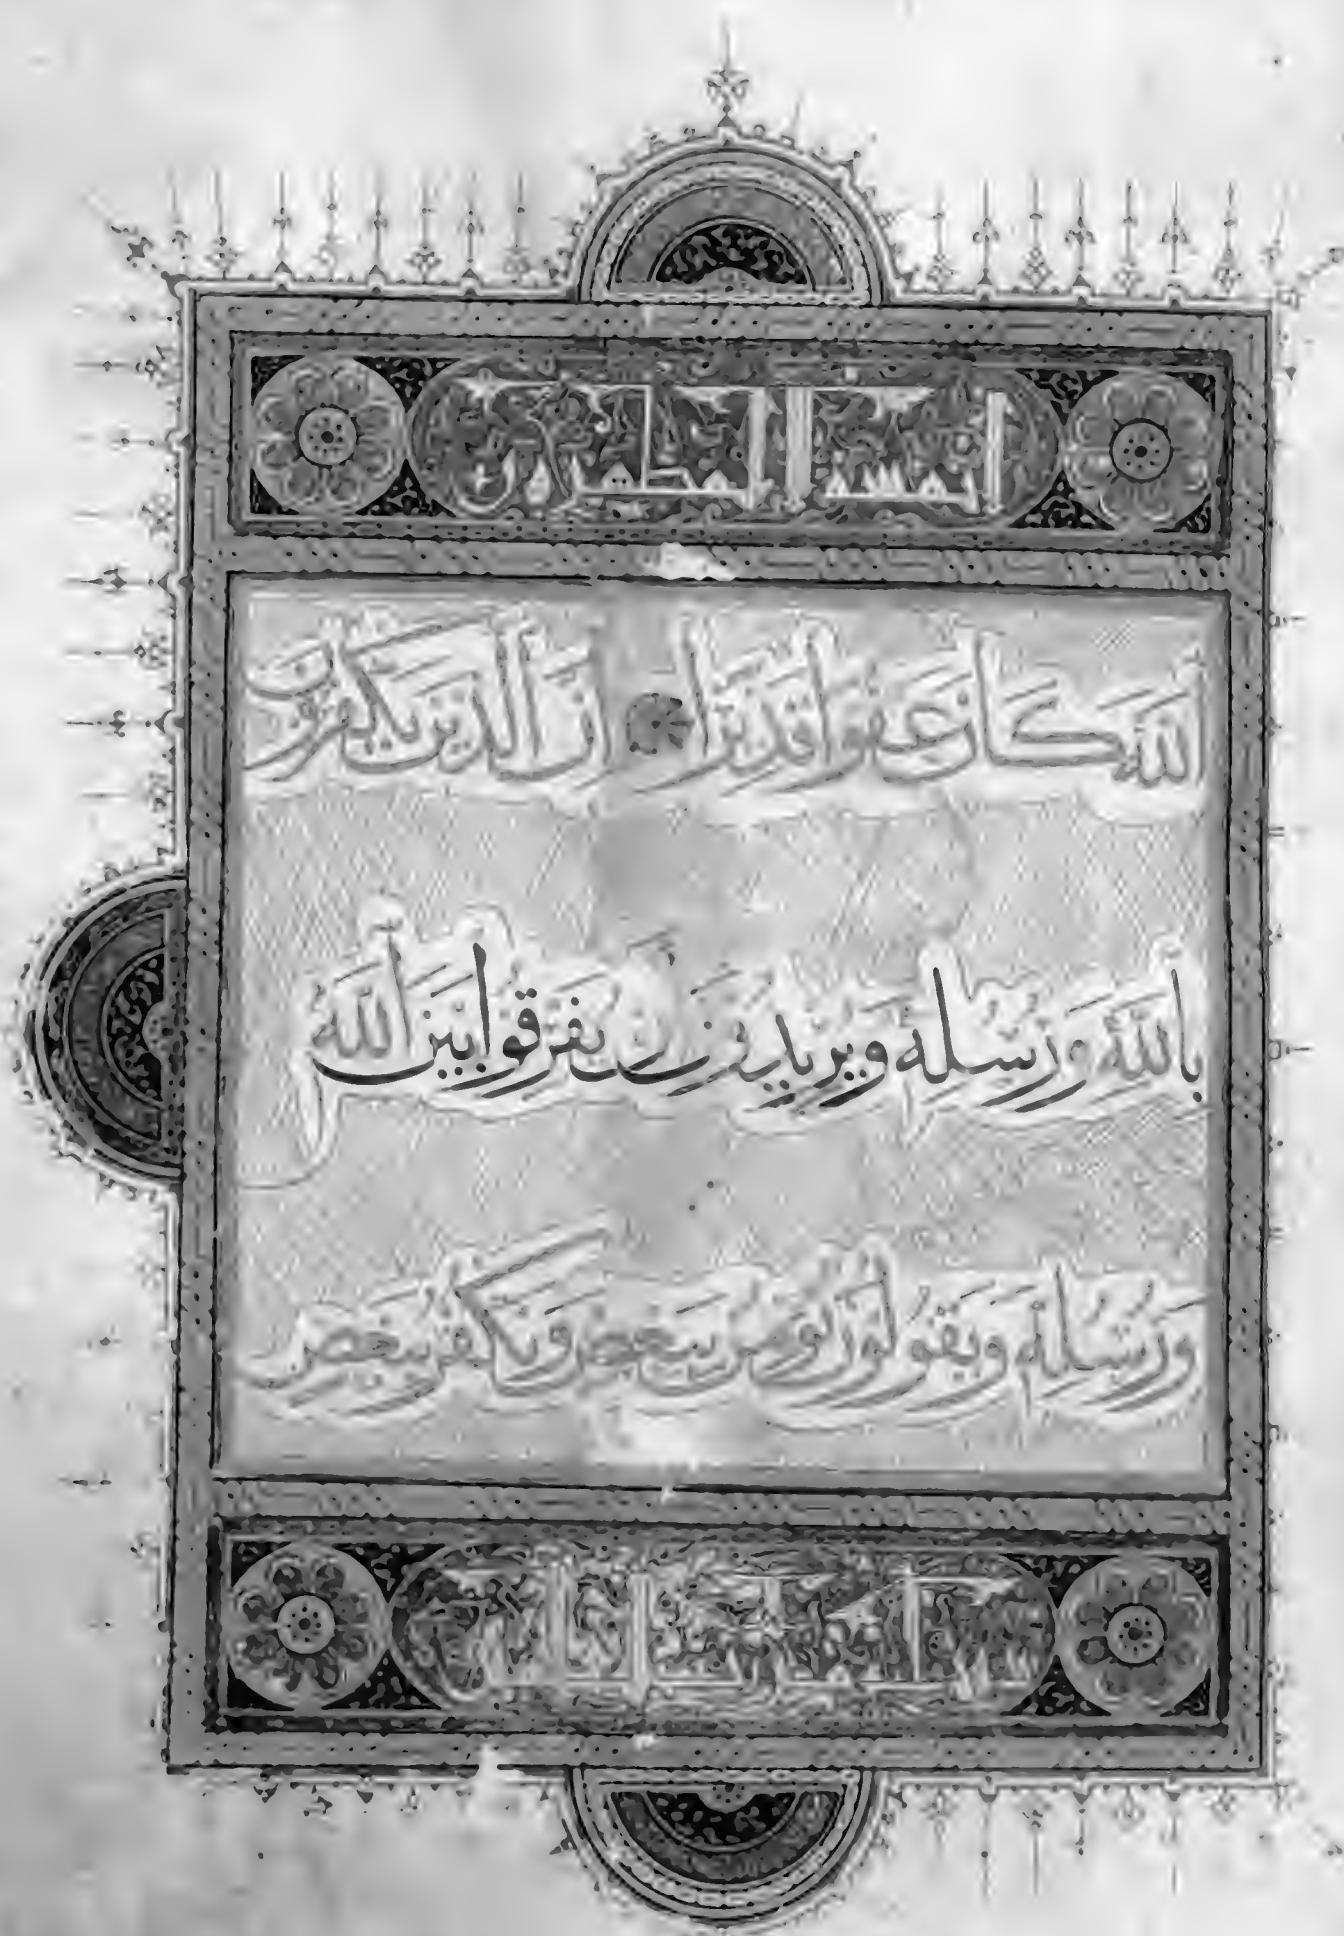 لا يمسه الا المطهرون
الله كان عفوا قديرا ان الذين يكفرون
بالله ورسله ويريدون ان يفرقوا بين الله
ورسله ويقولون نؤمن ببعض ونكفر ببعض